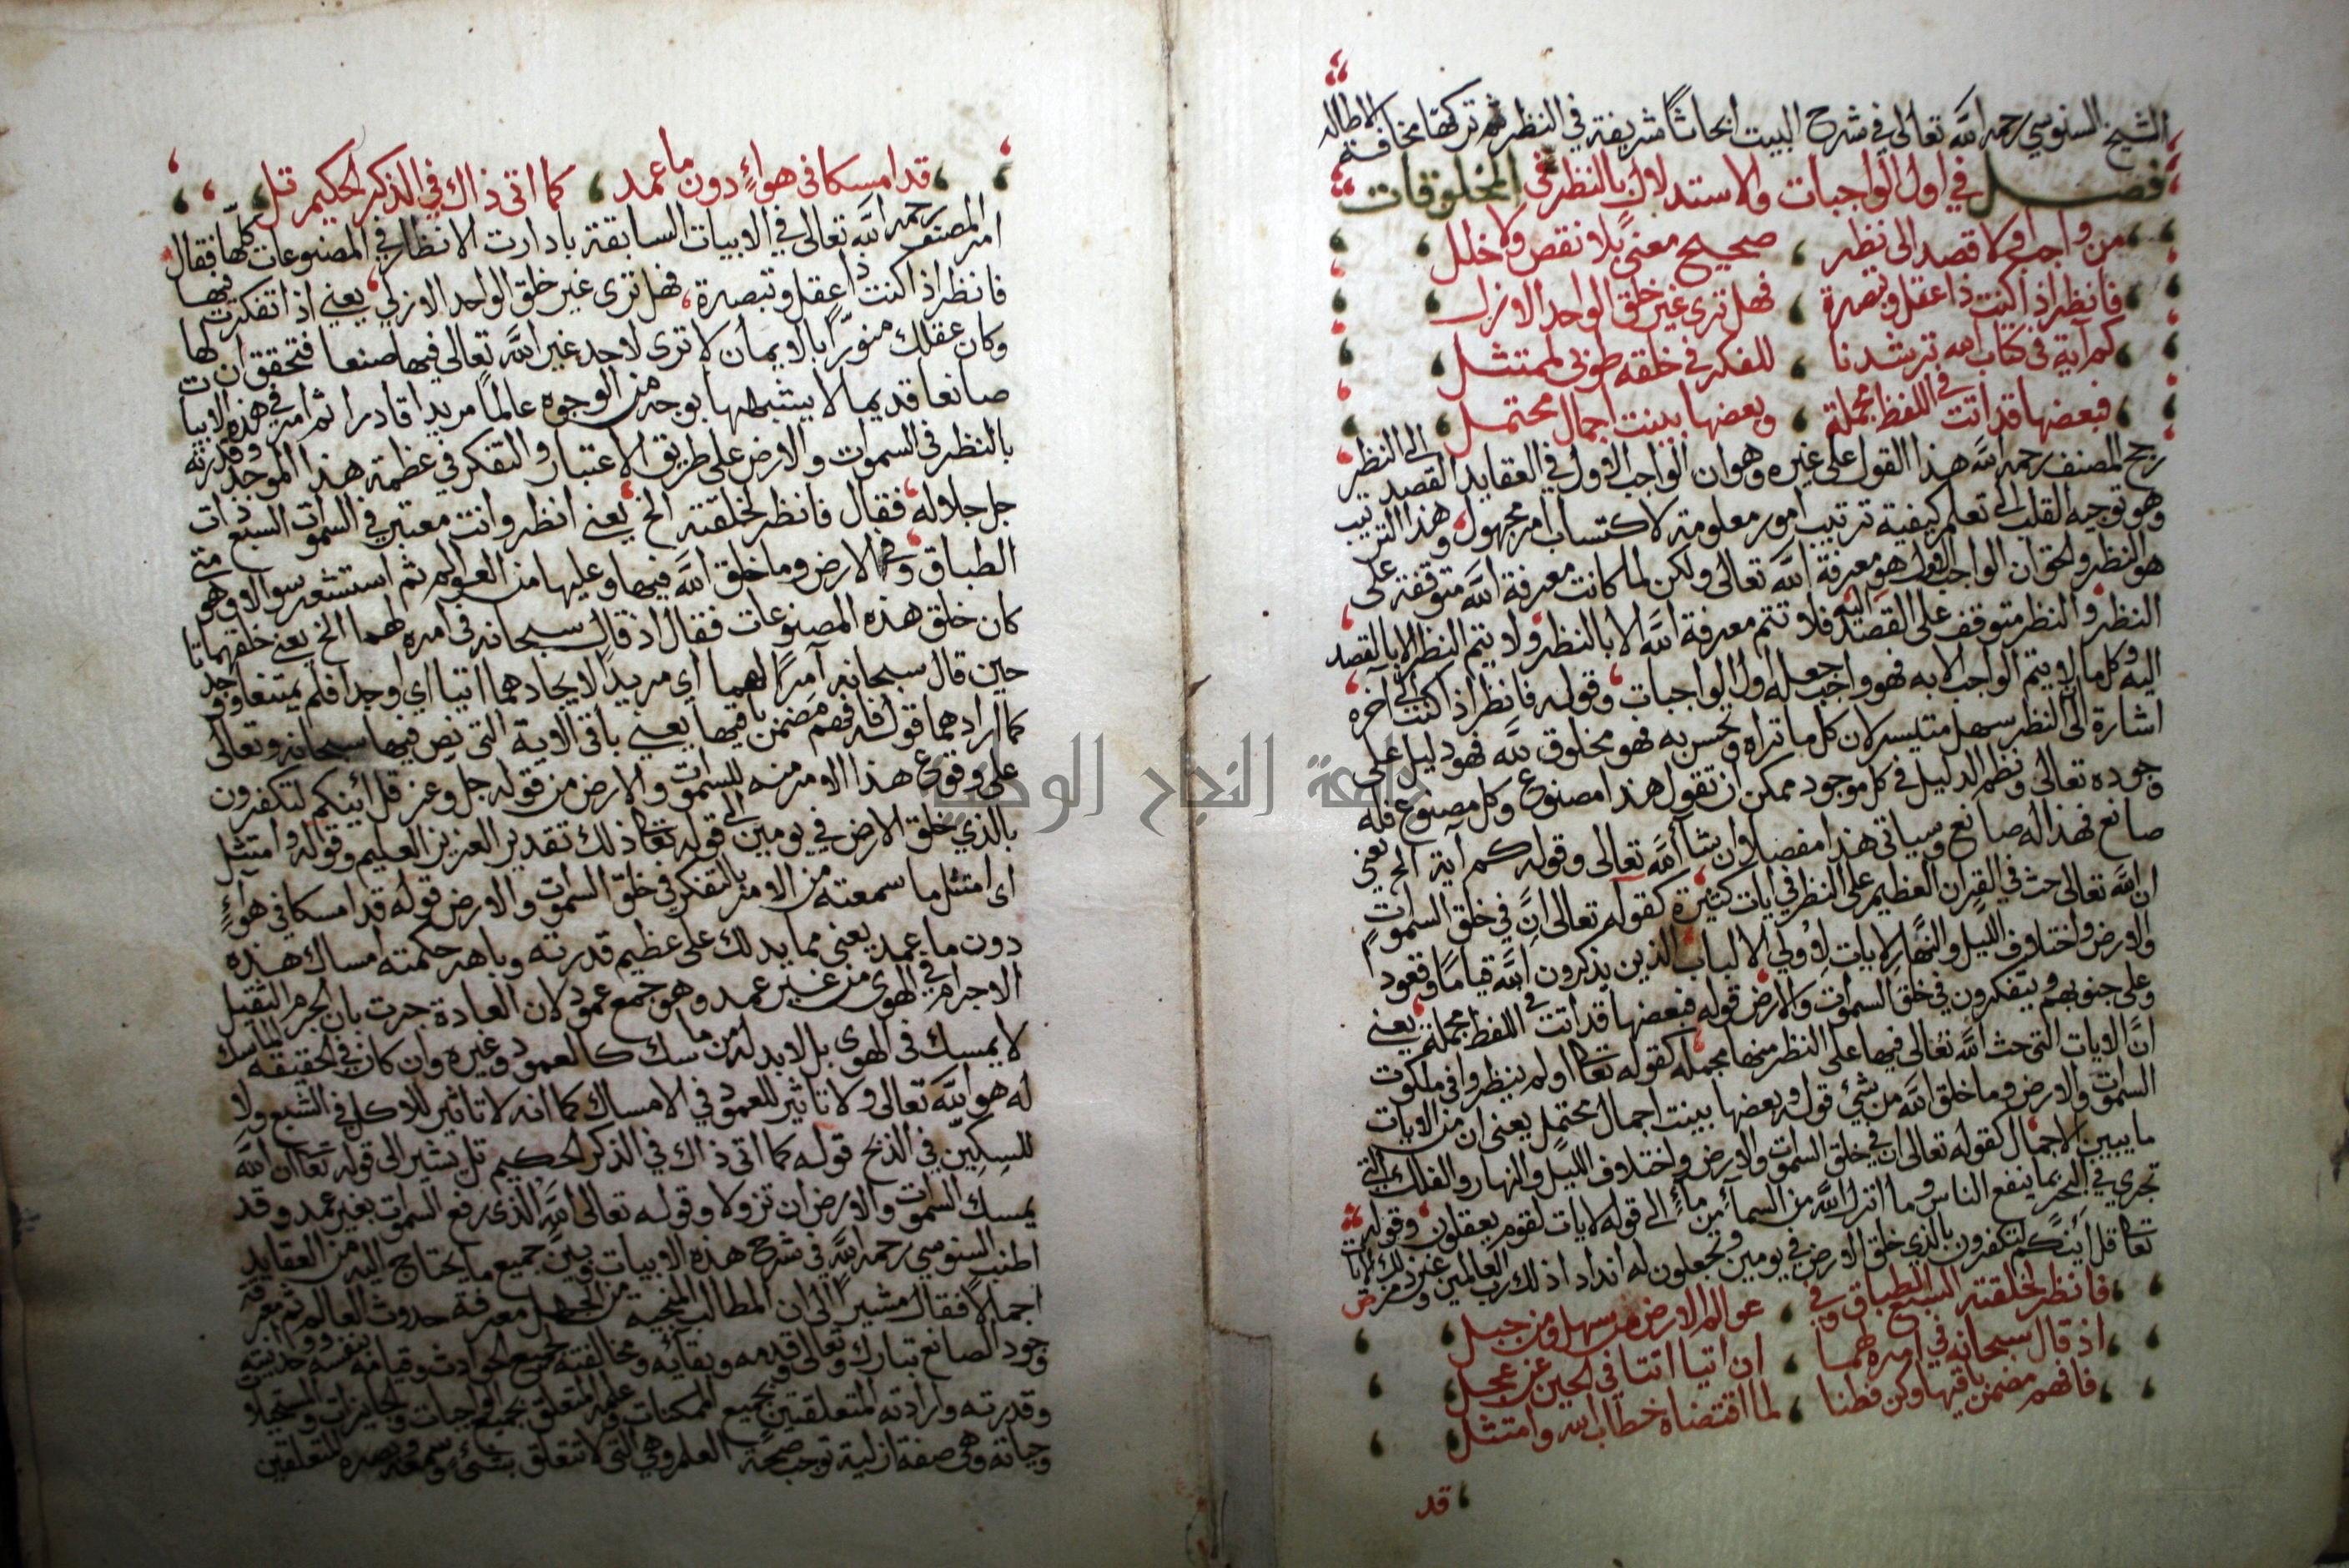 الشيخ السنوسي رحمه الله تعالى في شرح البيت ابحاثا شريفة في النظر ثم تركتها مخافة الاطالة
فصل في اول الواجبات والاستدلال بالنظر في المخلوقات
من واجب اولا قصد الى نظر صحيح معنى بلا نقص ولا خلل
فانظر اذا كنت ذا عقل وتبصرة فهل ترى غير خلق الواحد الازلي
كم اية في كتاب الله ترشدنا للفكر في خلقه طوبى لممتثل
فبعضها قد اتت في اللفظ مجملة وبعضها بينت اجمال محتمل
رجح المصنف رحمه الله هذا القول على غيره وهو ان الواجب الاول في العقايد القصد الى النظر
وهو توجيه القلب الى تعلم كيفية ترتيب امور معلومة لاكتساب امر مجهول وهذا الترتيب
هو النظر والحق ان الواجب الاول هو معرفة الله تعالى ولكن لما كانت معرفة الله متوقفة على
النظر والنظر متوقف على القصد اليه فلا تتم معرفة الله الا بالنظر ولا يتم النظر الا بالقصد
اليه وكل ما لا يتم الواجب الا به فهو واجب جعله اول الواجبات وقوله فانظر اذا كنت الى آخره
اشارة الى النظر سهل متيسر لان كل ما تراه وتحس به فهو مخلوق لله فهو دليل على
وجوده تعالى ونظم الدليل في كل موجود ممكن ان تقول هذا مصنوع وكل مصنوع فله
صانع فهذا له صانع وسياتي هذا مفصلا ان شا الله تعالى وقوله كم آية الخ يعني
ان الله تعالى حث في القران العظيم على النظر في ايات كثيرة كقوله تعالى ان في خلق السموات
والارض واختلاف الليل والنهار لايات لاولي الالباب الذين يذكرون الله قياما وقعودا
وعلى جنوبهم ويتفكرون في خلق السموات والارض قوله فبعضها قد اتت في اللفظ مجملة يعني
ان الايات التي حث الله تعالى فيها على النظر منها مجملة كقوله تعا اولم ينظروا في ملكوت
السموات والارض وما خلق الله من شيء قوله وبعضها بينت اجمال محتمل يعني ان من الايات
ما يبين الاجمال كقوله تعالى ان في خلق السموات والارض واختلاف الليل والنهار والفلك التي
تجري في البحر بما ينفع الناس وما انزل الله من السماء من ماء الى قوله لايات لقوم يعقلون وقوله
تعا قل أئنكم لتكفرون بالذي خلق الارض في يومين وتجعلون له اندادا ذلك رب العالمين وغير ذلك من الايات
فانظر لخلقته السبع الطباق وفي عوالم الارض من سهل ومن جبل
اذ قال سبحانه في امره لهما ان اتيا اتتا في الحين عن عجل
فافهم مضمن باقيها وكن فطنا لما اقتضاه خطاب الله وامتثل
قد
قد امسكا في هواء دون ما عمد كما اتى ذاك في الذكر الحكيم تل
امر المصنف رحمه الله تعالى في الابيات السابقة بادارت الانظار في المصنوعات كلها فقال
فانظر اذا كنت ذا عقل وتبصرة فهل ترى غير خلق الواحد الازلي يعني اذا تفكرت فيها
وكان عقلك منورا بالايمان لا ترى لاحد غير الله تعالى فيها صنعا فتحقق ان لها
صانعا قديما لا يشبهها بوجه من الوجوه عالما مريدا قادرا ثم امر في هذه الابيات
بالنظر في السموات والارض على طريق الاعتبار والتفكر في عظمة هذا الموجد وقدرته
جل جلاله فقال فانظر لخلقته الخ يعني انظر وانت معتبر في السموات السبع ذات
الطباق وفي الارض وما خلق الله فيها وعليها من العوالم ثم استشعر سوالا وهو متى
كان خلق هذه المصنوعات فقال اذ قال سبحانه في امره لهما الخ يعني خلقهما
حين قال سبحانه آمرا لهما اي مريدا لايجادهما ائتيا اي اوجدا فلم يمتنعا ووجد
كما ارادهما قوله فافهم مضمن باقيها يعني باقي الاية التي نص فيها سبحانه وتعالى
على وقوع هذا الامر منه للسموات والارض من قوله جل وعز قل أئنكم لتكفرون
بالذي خلق الارض في يومين الى قوله تعا ذلك تقدير العزيز العليم وقوله وامتثل
اى امتثل ما سمعته من الامر بالتفكر في خلق السموات والارض قوله قد امسكا في هواء
دون ما عمد يعني مما يدلك على عظيم قدرته وباهر حكمته امساك هذه
الاجرام في الهوى من غير عمد وهو جمع عمود لان العادة جرت بان الجرم الثقيل
لا يمسك في الهوى بل لابد له من ماسك كالعمود وغيره وان كان في الحقيقه الماسك
له هو الله تعالى ولا تاثير للعمود في الامساك كما انه لا تاثير للاكل في الشبع ولا
للسكين في الذبح قوله كما اتى ذاك في الذكر الحكيم تل يشير الى قوله تعا ان الله
يمسك السموات والارض ان تزولا وقوله تعالى الله الذي رفع السموات بغير عمد وقد
اطنب السنوسي رحمه الله في شرح هذه الابيات وبين جميع ما يحتاج اليه من العقايد
اجمالا فقال مشيرا الى ان المطالب المنجية من الجهل معرفة حدوث العالم ثم معرفة
وجود الصانع تبارك وتعالى وقدمه وبقائه ومخالفته لجميع الحوادث وقيامه بنفسه ووحدانيته
وقدرته وارادته المتعلقتين بجميع الممكنات وعلمه المتعلق بجميع الواجبات والجايزات والمستحيلات
وحياته وهي صفة ازلية توجب صحة العلم وهي التي لا تتعلق بشيء وسمعه وبصره المتعلقين
جامعة النجاح الوطنية